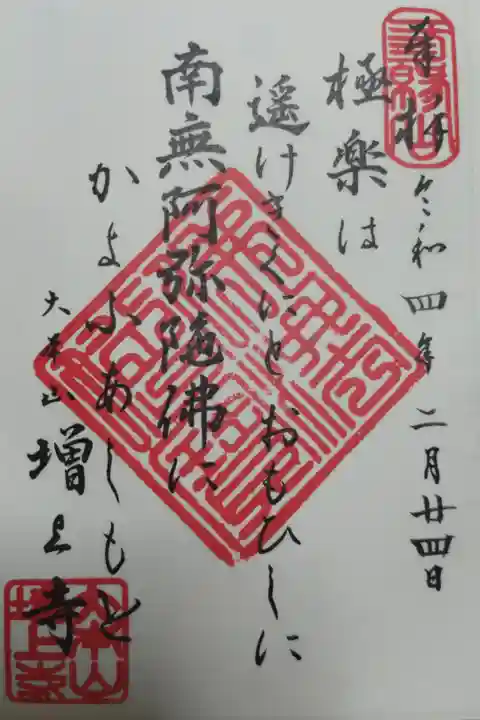 奉拝 令和四年 二月廿四日
極楽は
遥けきくにとおもひしに
南無阿弥陀佛に
かよふあしもと
大本山 増上寺
大本山
増上寺